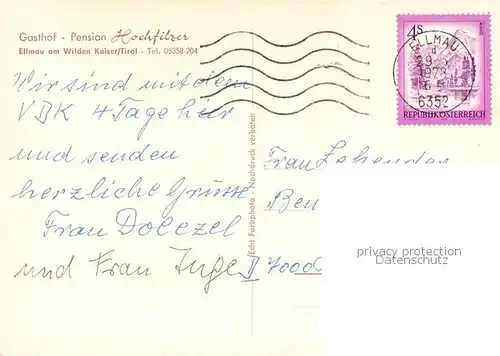 Gasthof - Pension Hochfilzer
Ellmau am Wilden Kaiser/Tirol - Tel. 05358-204
4S
ELLMAU
1978
6352
REPUBLIK ÖSTERREICH
Wir sind mit dem
VBK 4 Tage hier
und senden
herzliche Grüsse
Frau Dolezel
und Frau Inge
Echt Farbphoto - Nachdruck verboten
Frau
7000
privacy protection
Datenschutz